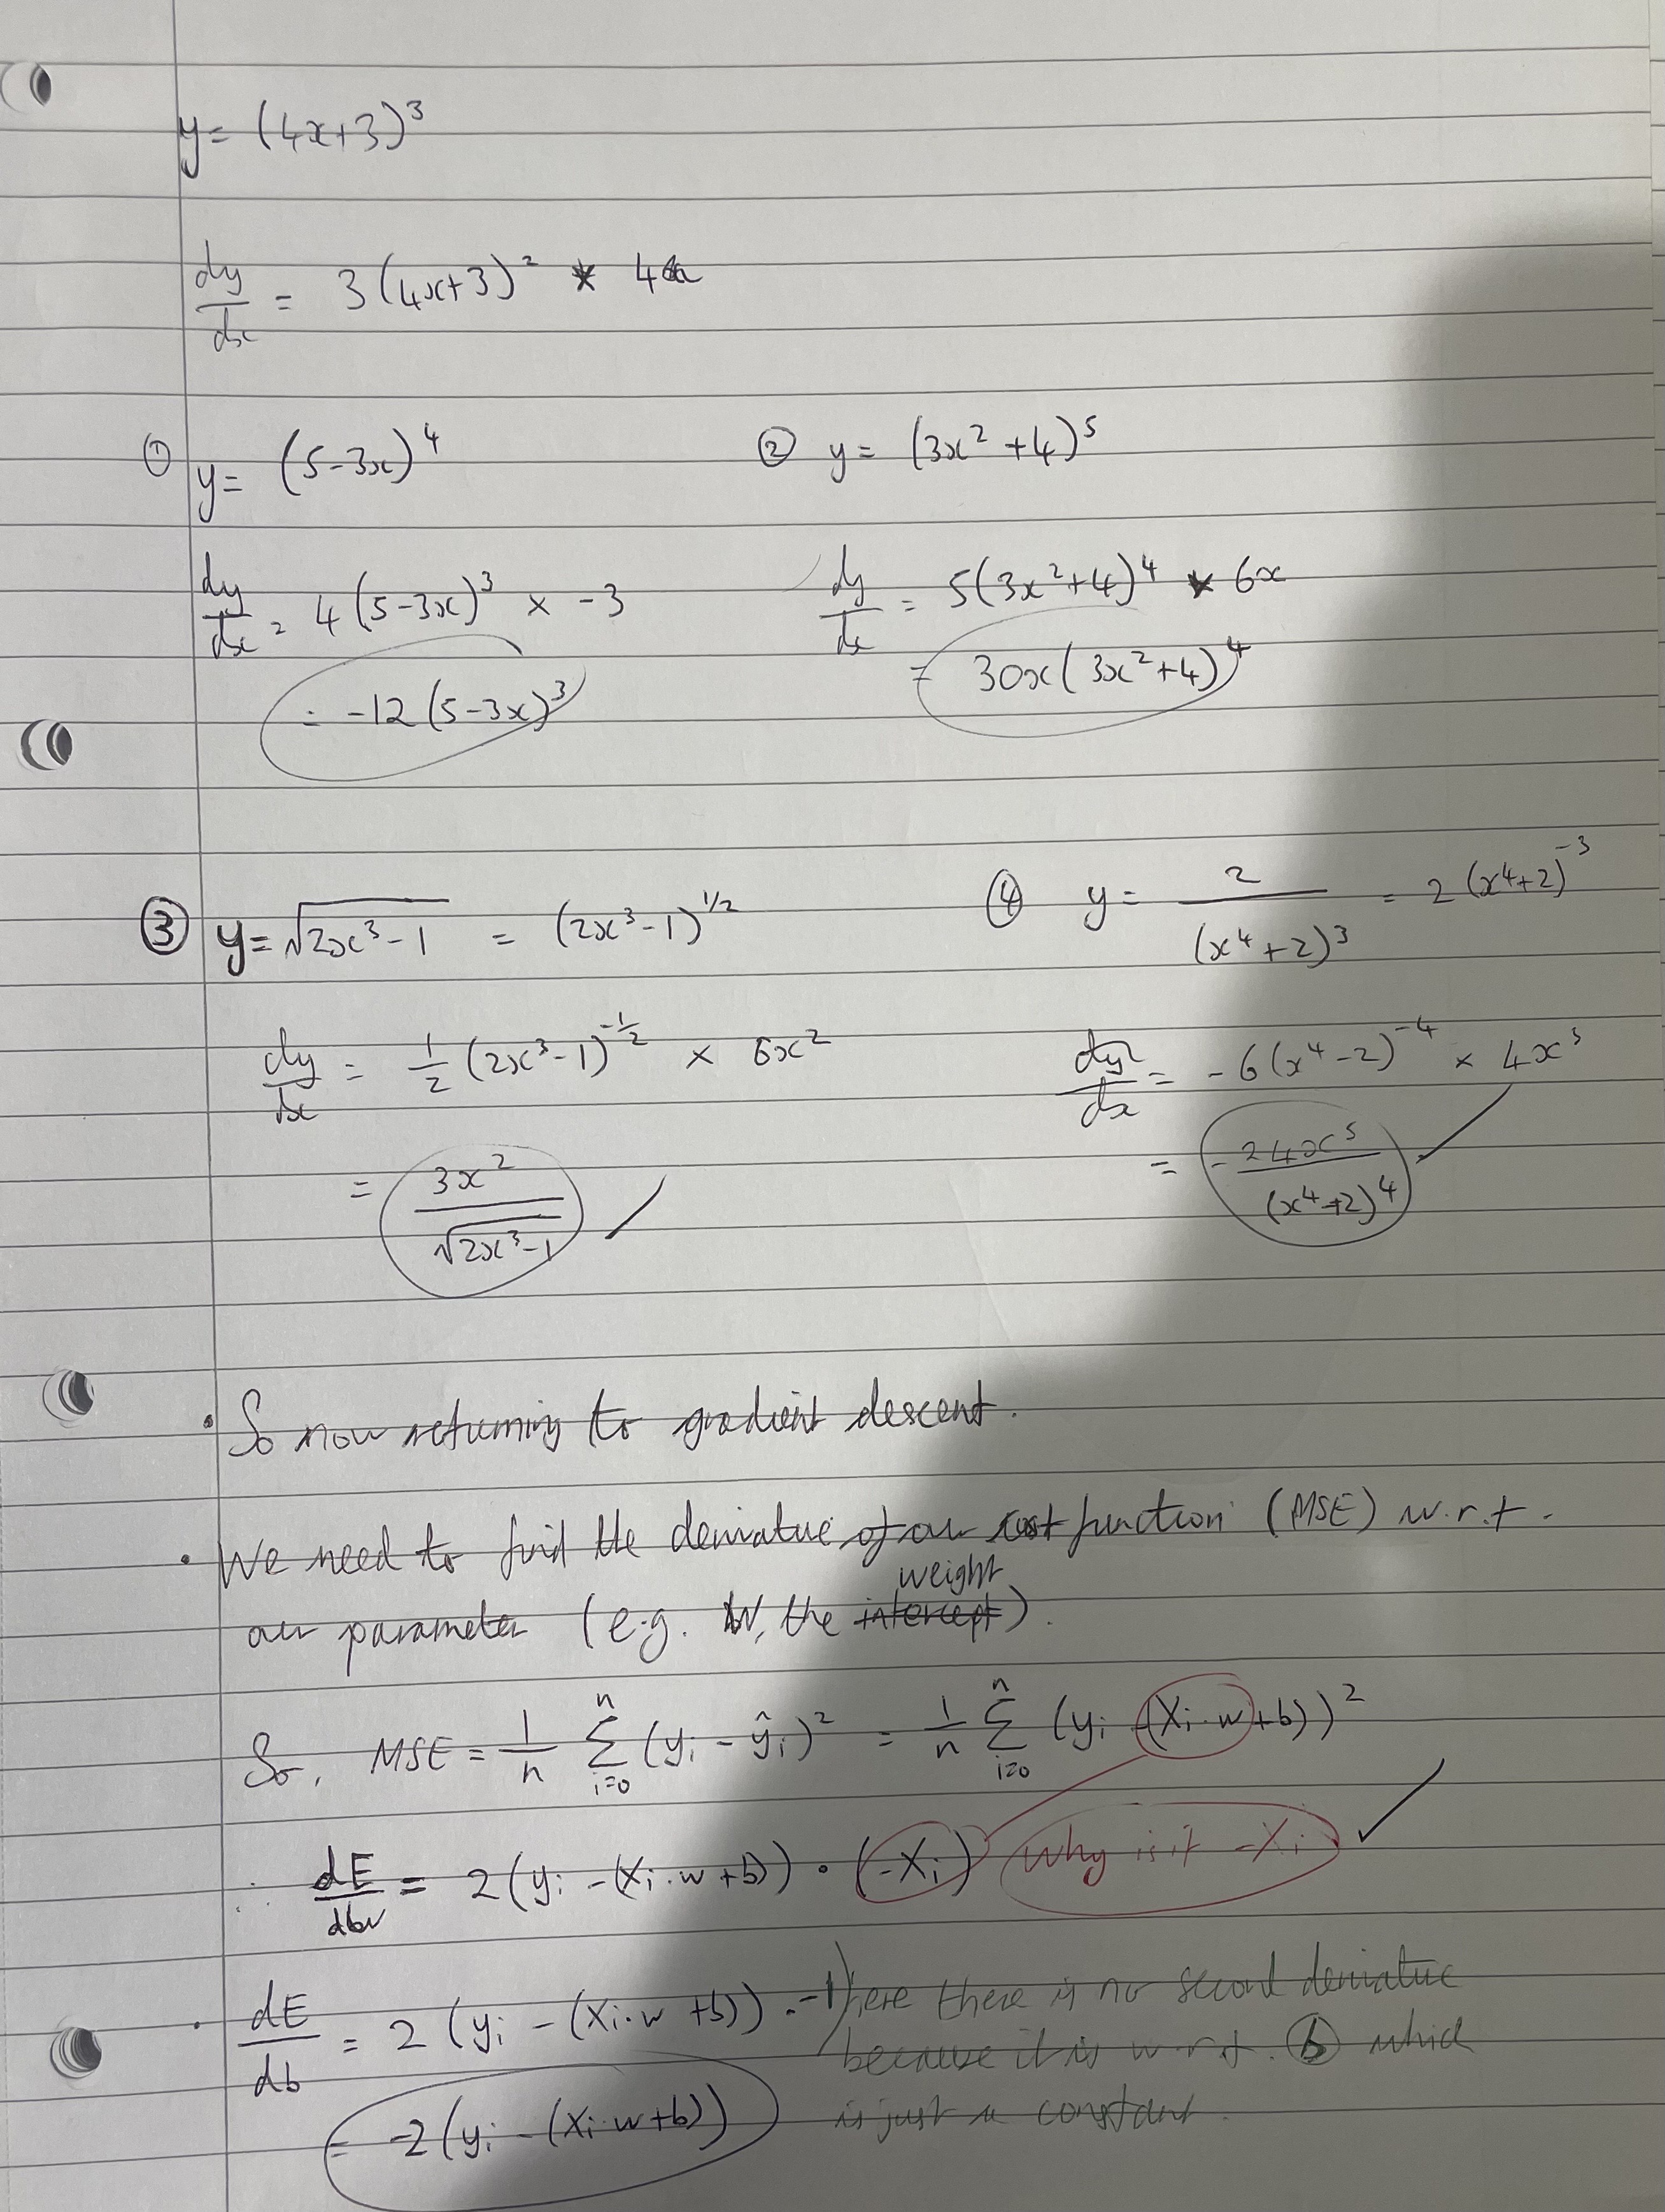 y = (4x+3)³
dy/dx = 3(4x+3)² * 4
① y = (5-3x)⁴
dy/dx = 4(5-3x)³ × -3
= -12(5-3x)³
② y = (3x²+4)⁵
dy/dx = 5(3x²+4)⁴ * 6x
= 30x(3x²+4)⁴
③ y = √(2x³-1) = (2x³-1)^(1/2)
dy/dx = 1/2 (2x³-1)^(-1/2) × 6x²
= 3x²/√(2x³-1)
④ y = 2/(x⁴+2)³ = 2(x⁴+2)⁻³
dy/dx = -6(x⁴-2)⁻⁴ × 4x³
= -24x³/(x⁴+2)⁴
• So now returning to gradient descent.
• We need to find the derivative of our cost function (MSE) w.r.t.
our parameter (e.g. W, the intercept weight).
So, MSE = 1/n Σ_{i=0}^{n} (yᵢ - ŷᵢ)² = 1/n Σ_{i=0}^{n} (yᵢ - (Xᵢ·w+b))²
∴ dE/dw = 2(yᵢ - (Xᵢ·w+b)) · (-Xᵢ) why is it -Xᵢ
• dE/db = 2(yᵢ - (Xᵢ·w+b)) · -1
= -2(yᵢ - (Xᵢ·w+b))
here there is no second derivative
because it is w.r.t. b which
is just a constant.